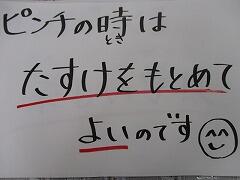 ピンチの時は
とき
たすけをもとめて
よいのです